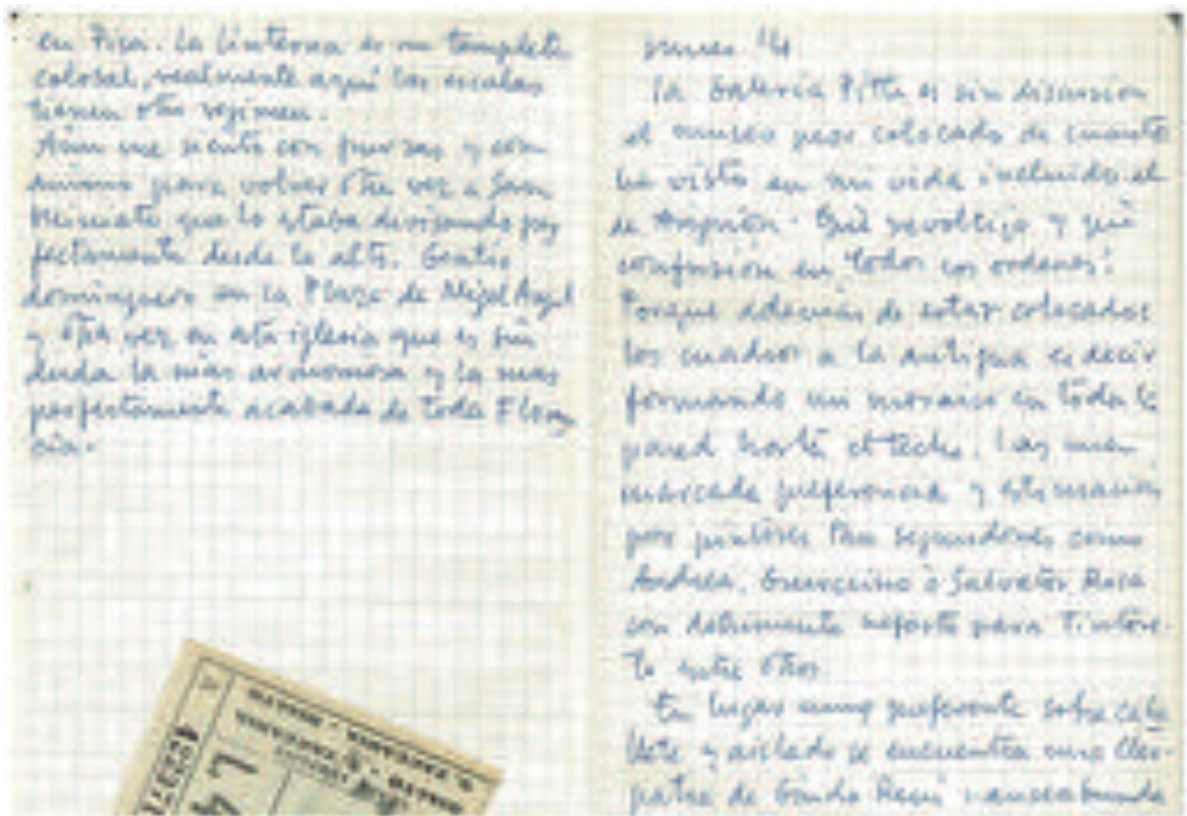 en Pisa. La linterna es un templete
colosal, realmente aquí las escalas
tienen otro regimen.
Aún me siento con fuerzas y con
animo para volver otra vez a San
Miniato que lo estaba divisando per
fectamente desde lo alto. Gentío
dominguero en la Plaza de Migel Angel
y otra vez en esta iglesia que es sin
duda la más armoniosa y la mas
perfectamente acabada de toda Floren
cia.
lunes 14
La Galería Pitti es sin discusion
el museo peor colocado de cuanto
he visto en mi vida incluido el
de Avignón. Qué revoltijo y qué
confusión en todos los ordenes!
Porque además de estar colocados
los cuadros a la antigua es decir
formando un mosaico en toda la
pared hasta el techo. Hay una
marcada preferencia y estimación
por pintores tan segundones como
Andrea, Guercino o Salvator Rosa
con detrimento nefasto para Tintore-
to entre otros.
En lugar muy preferente sobre caba
llete y aislado se encuentra una Cleo-
patra de Guido Reni nauseabunda